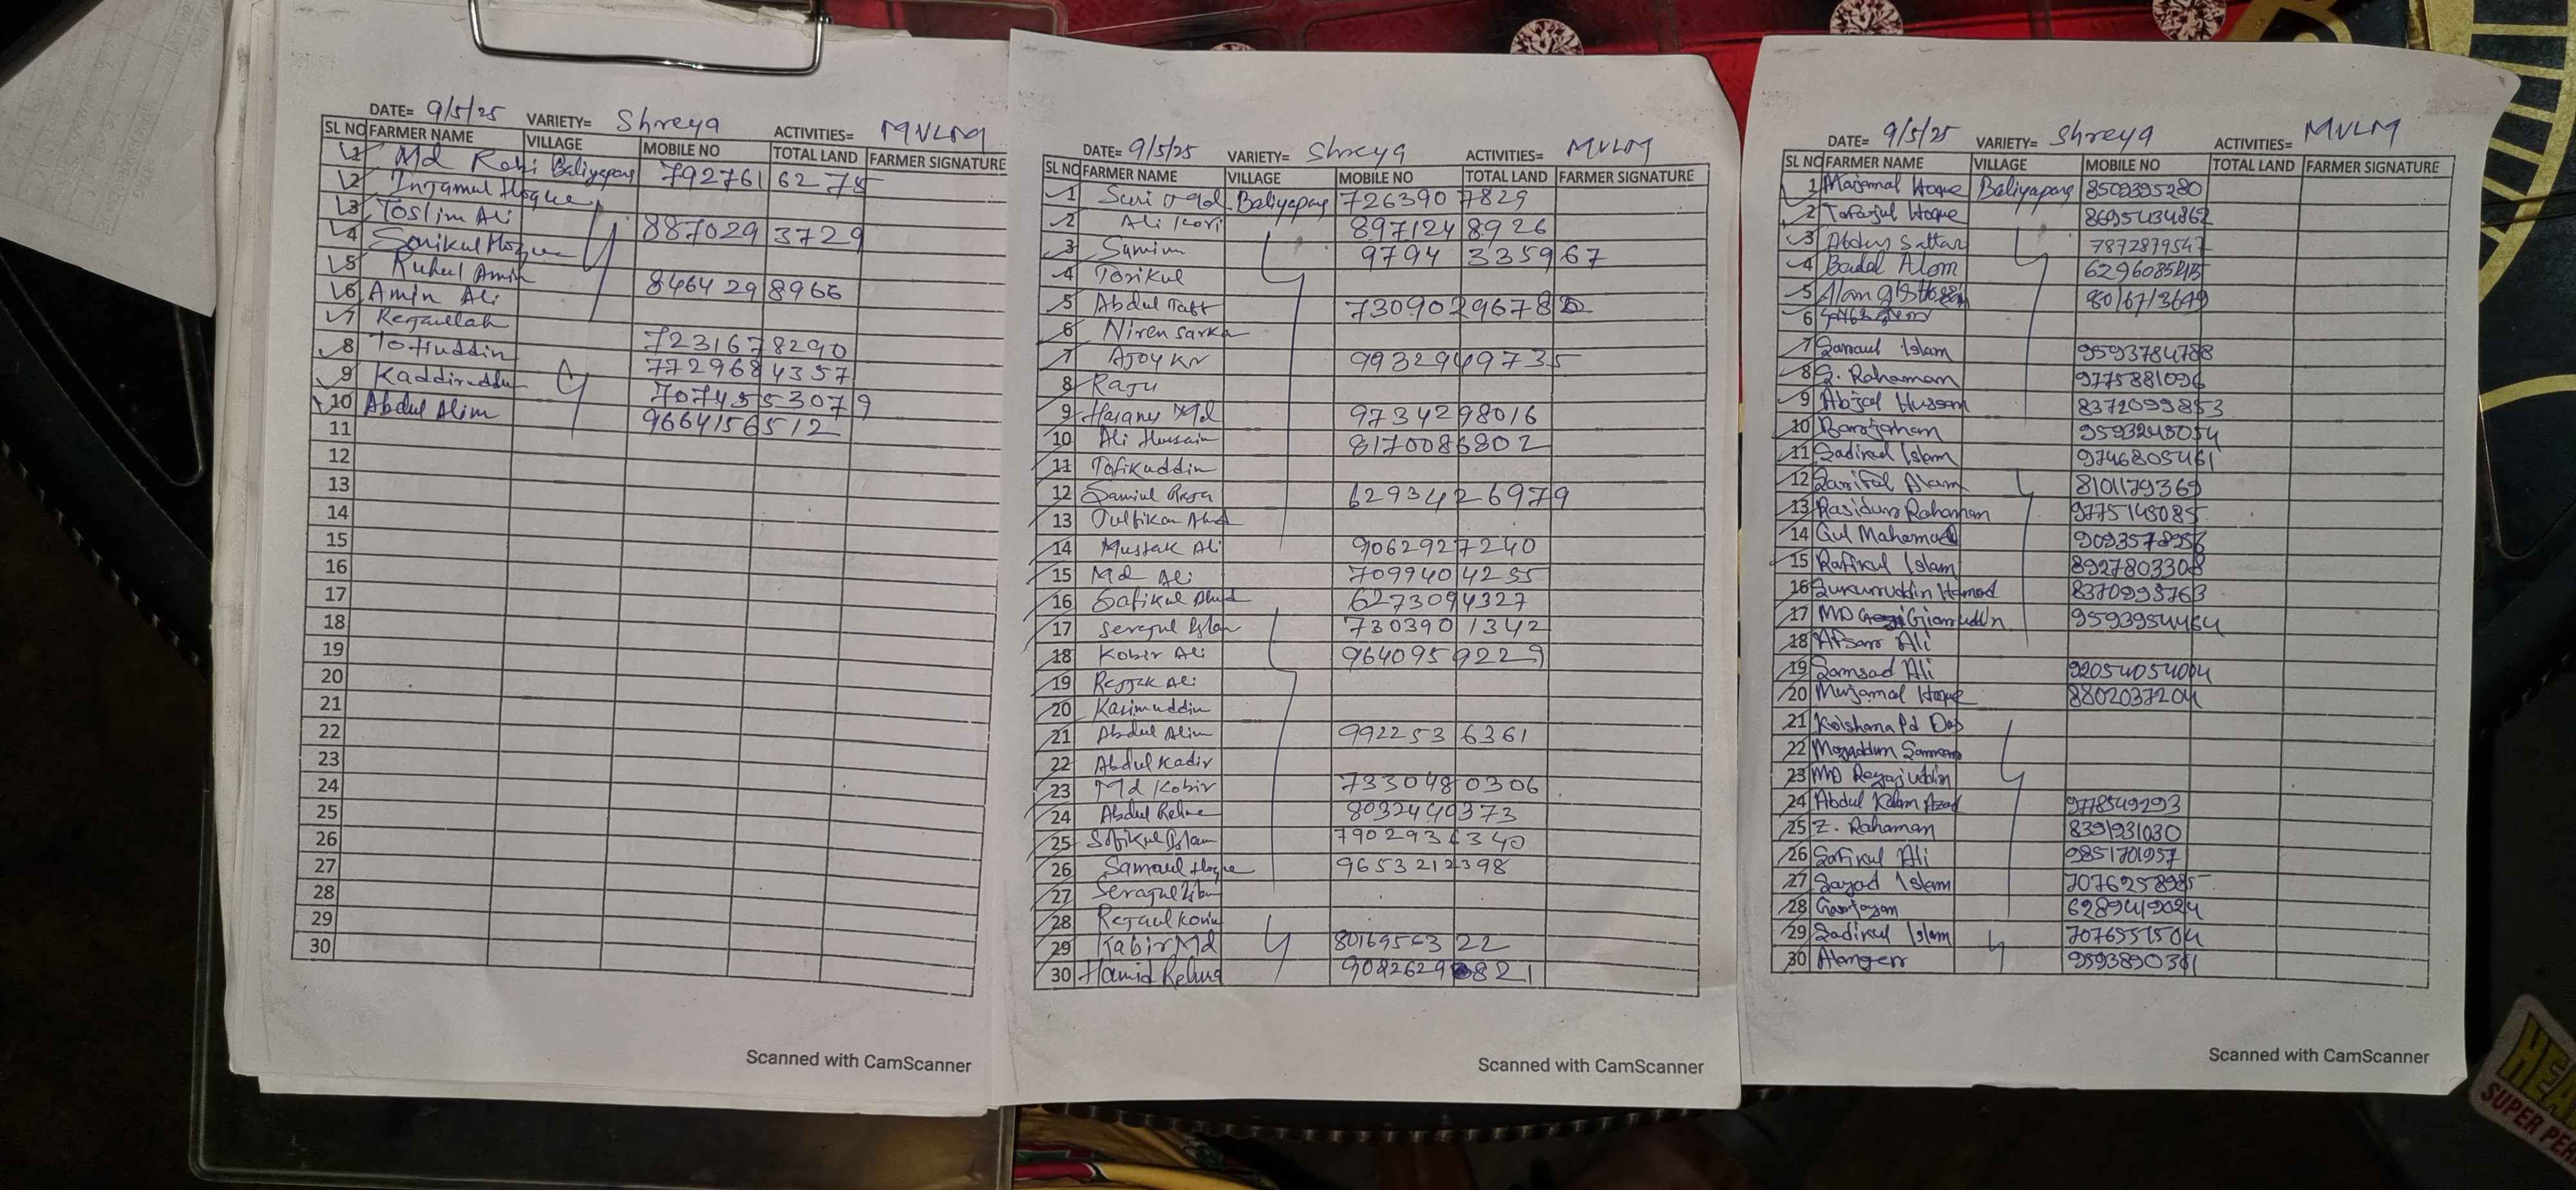 DATE= 9/5/25 VARIETY= Shreya ACTIVITIES= MVLM
SL NO FARMER NAME VILLAGE MOBILE NO TOTAL LAND FARMER SIGNATURE
1 Md Robi Baliyapang 7927616275
2 Injamul Hoque
3 Toslim Ali 8870293729
4 Sarikul Hoque
5 Ruhul Amin 8464298966
6 Amin Ali
7 Rejaullah 7231678290
8 Tofiuddin 7729684357
9 Kaddiruddin 7074553079
10 Abdul Alim 9664156512
11
12
13
14
15
16
17
18
19
20
21
22
23
24
25
26
27
28
29
30
Scanned with CamScanner
DATE= 9/5/25 VARIETY= Shreya ACTIVITIES= MVLM
SL NO FARMER NAME VILLAGE MOBILE NO TOTAL LAND FARMER SIGNATURE
1 Baliyapang 7263907829
2 Ali Kori 8971248926
3 Samim 9794335967
4 Torikul
5 Abdul 7309029678
6 Niren Sarka
7 Ajoy Kr 9932949735
8 Raju
9 Md 9734298016
10 Ali Hussain 8170086802
11 Tofikuddin
12 Samiul Reja 6293426979
13 Julfikar Ahmd
14 Mustak Ali 9062927240
15 Md Ali 7099404255
16 Safikul Ahmd 6273094327
17 Serajul Islam 7303901342
18 Kobir Ali 9640959229
19 Rejjak Ali
20 Karimuddin
21 Abdul Alim 9922536361
22 Abdul Kadir
23 Md Kobir 7330480306
24 Abdul Rehme 8032440373
25 Sofikul Islam 7902936340
26 Samaul Hoque 9653212398
27 Serajul
28 Rejaul Korim
29 Kabir Md 8016956322
30 Hamid 821
Scanned with CamScanner
DATE= 9/5/25 VARIETY= Shreya ACTIVITIES= MVLM
SL NO FARMER NAME VILLAGE MOBILE NO TOTAL LAND FARMER SIGNATURE
1 Majamal Hoque Baliyapang 8509395280
2 Tofajul Hoque 8695434862
3 Abdus Sattar 7872879547
4 Badal Alom 6296085415
5 8016713649
6
7 Samaul Islam 9593784788
8 S. Rahaman 9775881096
9 Abjal Hussen 8372099853
10 9593248054
11 Sadirul Islam 9746805461
12 Sariful Alam 8101179369
13 Rasidur Rahaman 9775145085
14 Gul Mahamad
15 Rafikul Islam 8927803308
16 8370993763
17 MD Giamuddin 9593954464
18 Afsar Ali
19 Samsad Ali
20 Mujamal Hoque 8802037204
21 Pd Das
22
23 MD Reyajuddin
24 Abdul Kalam Azad 9778549293
25 Z. Rahaman 8391931030
26 Safikul Ali 9851701957
27 Sayad Islam 7076258985
28 6289419024
29 Sadikul Islam 7076551504
30 9593890361
Scanned with CamScanner
HEA
SUPER PER